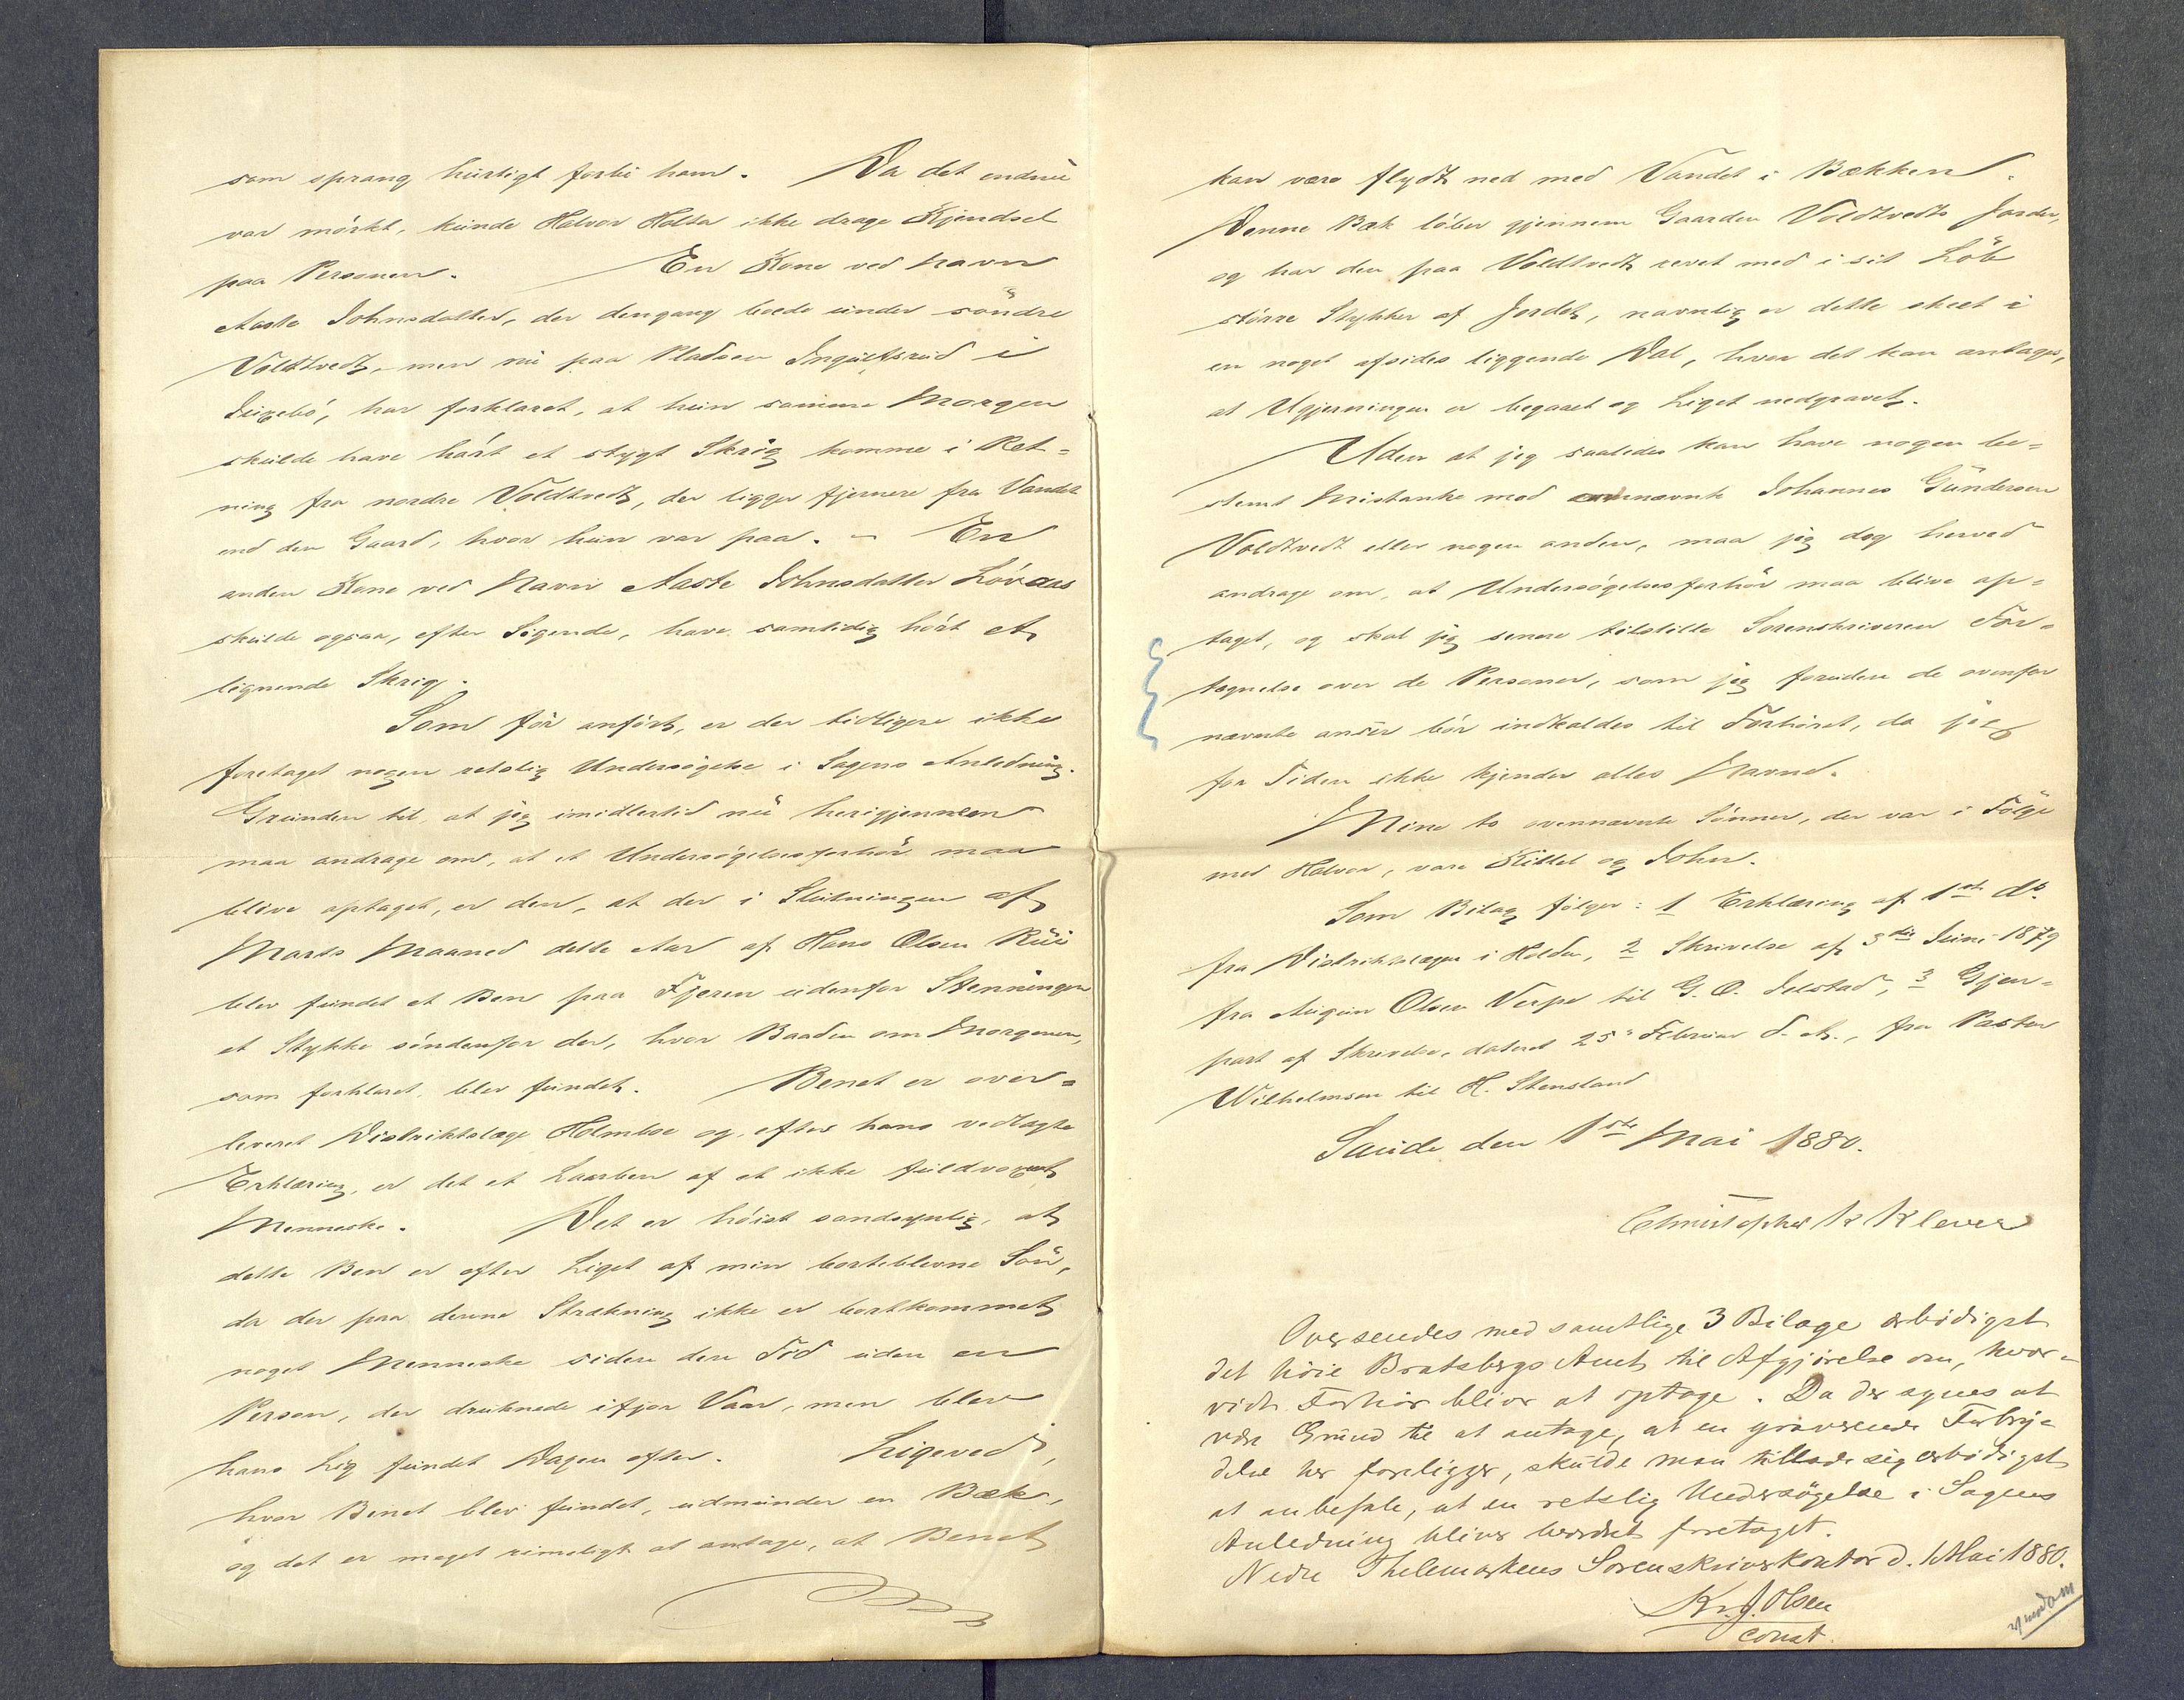 som sprang hurtigt forbi ham. Da det endnu
var mørkt, kunde Halvor Holta ikke drage Kjendsel
paa Personen. En Kone ved Navn
Aaste Johnsdatter, der dengang boede under söndre
Voldtvedt, men nu paa Pladsen Ingulfsrud i
har forklaret, at hun samme Morgen
skulde have hørt et stygt Skrig komme i Ret=
ning fra nordre Voldtvedt, der ligger fjernere fra Vandet
end den Gaard, hvor hun var paa. – En
anden Kone ved Navn Aaste Johnsdatter Lövaas
skulde ogsaa, efter Sigende, have samtidig hørt et
lignende Skrig.
Som för anfört, er der tidligere ikke
foretaget nogen retslig Undersögelse i Sagens Anledning.
Grunden til, at jeg imidlertid nu herigjennem
maa andrage om, at et Undersögelsesforhör maa
blive optaget, er den, at der i Slutningen af
Marts Maaned dette Aar af Hans Olsen Rui
blev fundet et Ben paa Fjæren udenfor Stenningen
et Stykke søndenfor der, hvor Baaden om Morgenen,
som forklaret, blev fundet. Benet er over=
leveret Distriktslæge Holmboe og, efter hans vedlagte
Erklæring, er det et Laarben af et ikke fuldvoxent
Menneske. Det er høist sandsynlig, at
dette Ben er efter Liget af min bortblevne Sön,
da der paa denne Strækning ikke er bortkommet
noget Menneske siden den Tid uden en
Person, der druknede ifjor Vaar, men blev
hans Lig fundet Dagen efter. Ligeved,
hvor Benet blev fundet, udmunder en Bæk,
og det er meget rimeligt at antage, at Benet
kan være flydt ned med Vandet i Bækken.
Denne Bæk löber gjennem Gaarden Voldtvedts Jorder,
og har den paa Voldtvedt revet med i sit Löb
större Stykker af Jordet, navnlig er dette skeet i
en noget afsides liggende Dal, hvor det kan antages,
at Ugjerningen er begaaet og Liget nedgravet.
Uden at jeg saaledes kan have nogen be=
stemt Mistanke mod ovennævnte Johannes Gundersen
Voldtvedt eller nogen anden, maa jeg dog herved
andrage om, at Undersögelsesforhör maa blive op=
taget, og skal jeg senere tilstille Sorenskriveren For=
tegnelse over de Personer, som jeg foruden de ovenfor
nævnte anser bör indkaldes til Forhöret, da jeg
for Tiden ikke kjender alles Navne.
Mine to ovennævnte Sönner, der var i Fölge
med Halvor, vare Kittel og John.
Som Bilag fölger: 1 Erklæring af 1ste ds.
fra Distriktslægen i Holden, 2 Skrivelse af 3die Juni 1879
fra Olsen Verpe til G. O. 3 Gjen=
part af Skrivelse, dateret 25. Februar d. A., fra Pastor
Wilhelmsen til H. Stensland
Saude den 1ste Mai 1880.
Christopher K Kleven
Oversendes med samtlige 3 Bilage ærbødigst
det høie Bratsbergs Amt til Afgjørelse om, hvor=
vidt Forhør bliver at optage. Da der synes at
være Grund til at antage, at en graverende Forbry=
delse her foreligger, skulde man tillade sig ærbødigst
at anbefale, at en retslig Undersøgelse i Sagens
Anledning bliver beordret foretaget.
Nedre Thelemarkens Sorenskriverkontor d. 1 Mai 1880.
Kr. J. Olsen
const.